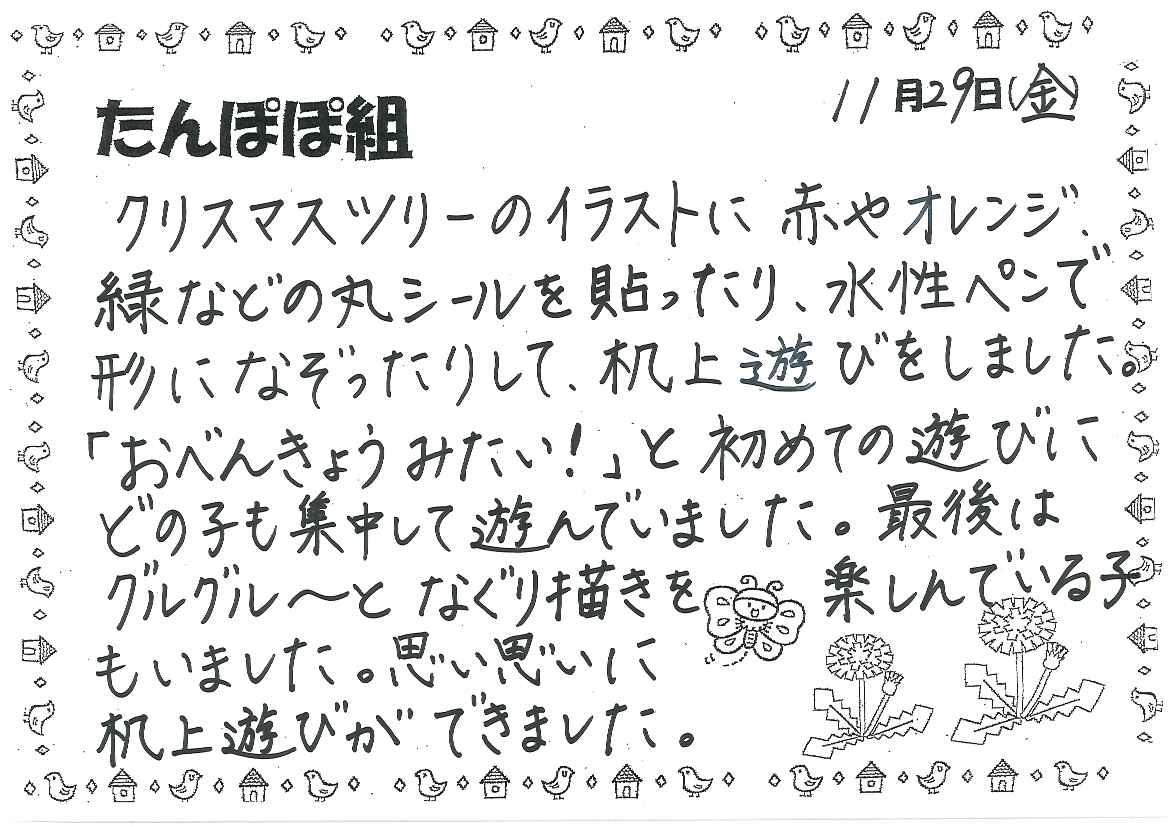 11月29日(金)
たんぽぽ組
クリスマスツリーのイラストに赤やオレンジ、
緑などの丸シールを貼ったり、水性ペンで
形になぞったりして、机上遊びをしました。
「おべんきょうみたい!」と初めての遊びに
どの子も集中して遊んでいました。最後は
グルグル〜となぐり描きを楽しんでいる子
もいました。思い思いに
机上遊びができました。